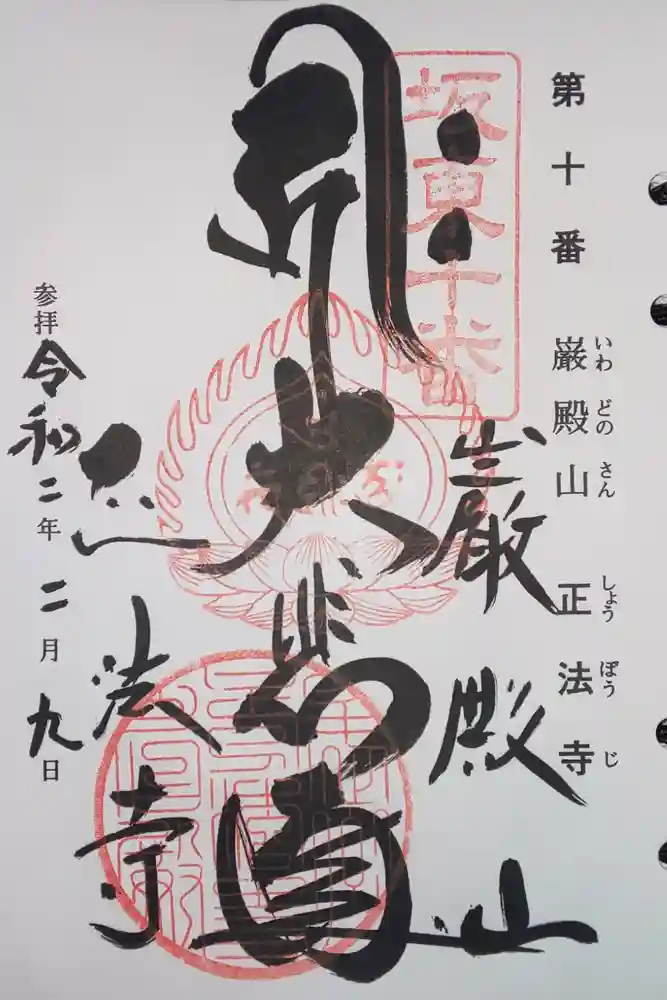 第十番 巌殿山 正法寺
いわ どの さん しょう ぼう じ
坂東十番
巌殿山
大悲殿
正法寺
参拝 令和二年 二月 九日